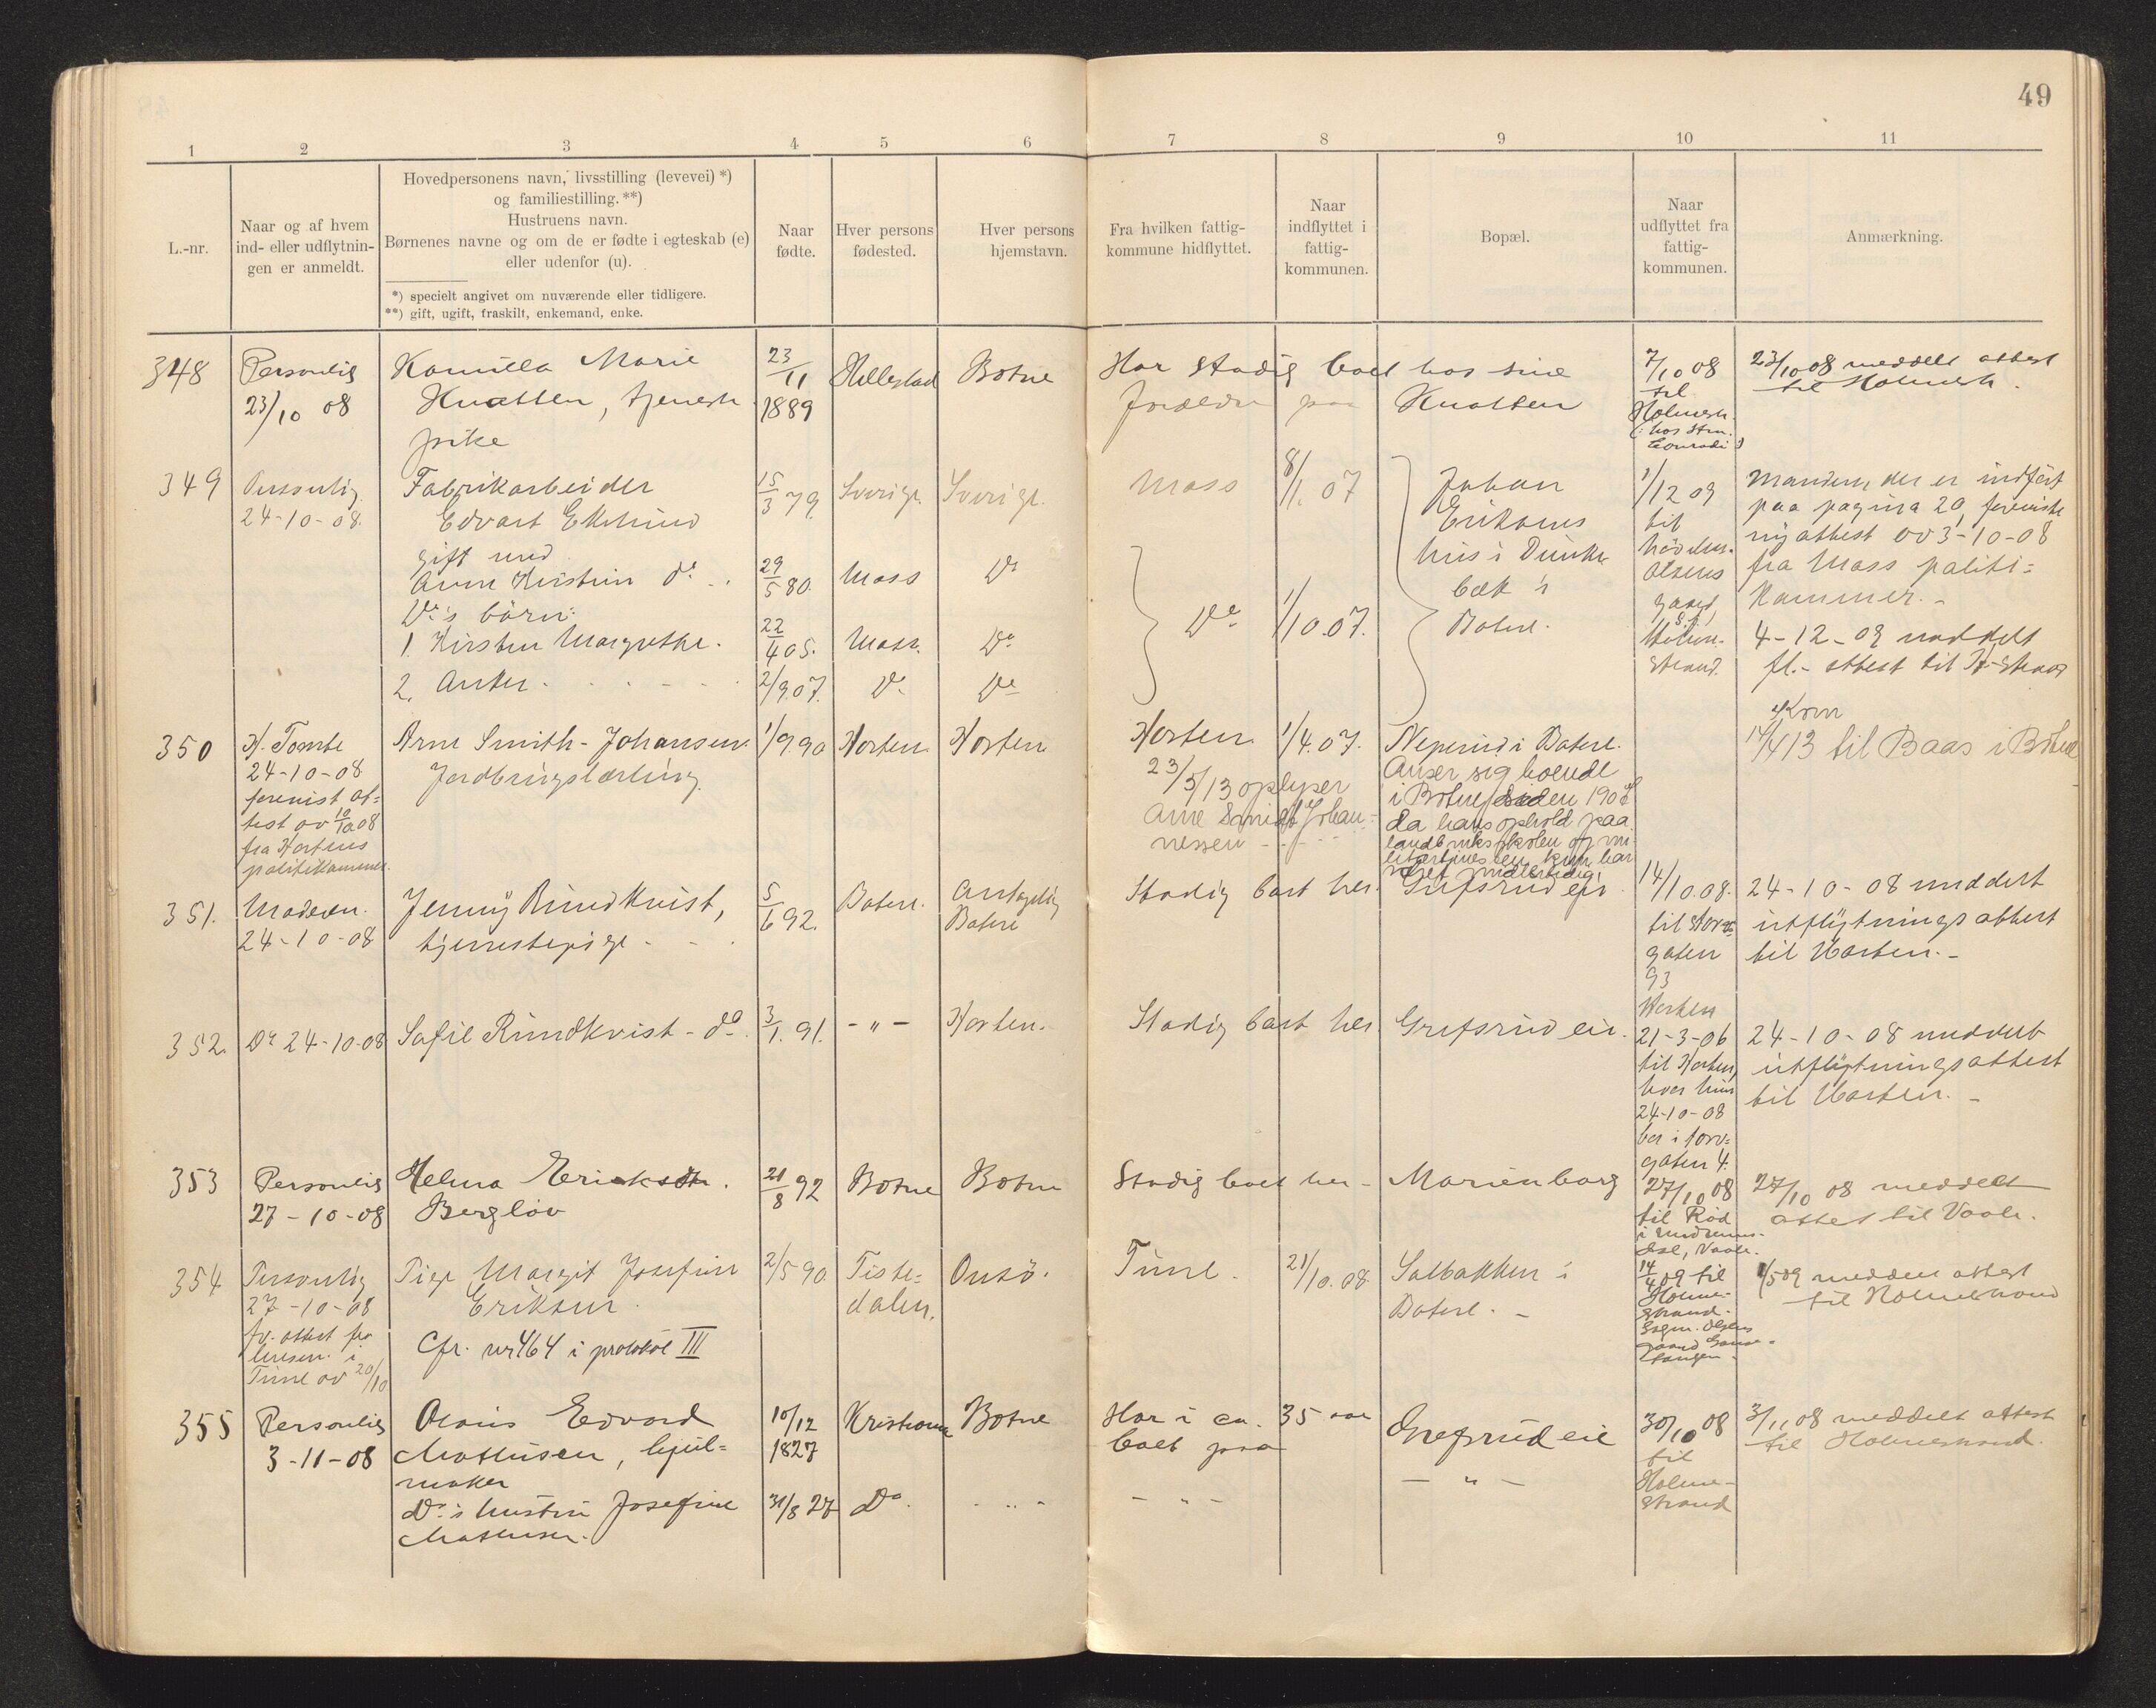 49
1 2 3 4 5 6 7 8 9 10 11
L.-nr.
Naar og af hvem
ind- eller udflytnin-
gen er anmeldt.
Hovedpersonens navn, livsstilling (levevei) *)
og familiestilling. **)
Hustruens navn.
Børnenes navne og om de er fødte i egteskab (e)
eller udenfor (u).
*) specielt angivet om nuværende eller tidligere.
**) gift, ugift, fraskilt, enkemand, enke.
Naar
fødte.
Hver persons
fødested.
Hver persons
hjemstavn.
Fra hvilken fattig-
kommune hidflyttet.
Naar
indflyttet i
fattig-
kommunen.
Bopæl.
Naar
udflyttet fra
fattig-
kommunen.
Anmærkning.
348
Personlig
23/10 08
Kamilla Marie
Knatten, tjeneste
pike
23/11
1889
Hillestad
Botne
Har stadig boet hos sine
forældre paa Knatten
7/10 08
til
Holmestr.
23/10 08 meddelt attest
til Holmestr.
349
Personlig
24-10-08.
Fabrikarbeider
Edvart Eklund
gift med
Anne Kristin do.
Do's børn:
1. Kirsten Margrethe.
2. Anker.
15/3 79.
29/5 80.
22/4 05.
2/9.07.
Sverige.
Moss
Moss.
Do
Sverige.
Do
Do
Do
Moss
Do
8/1. 07
1/10.07.
Johan
Eriksens
hus i Dunke
bæk i
Botne.
1/12 09
til
Olsens
gaard,
Holme-
strand.
Manden, der er indført
paa pagina 29, foreviste
ny attest av 3-10-08
fra Moss politi-
kammer.-
4-12-09 meddelt
fl.- attest til H-strand
350
H. Tomte
24-10-08
forevist at-
test av 10/10 08
fra Hortens
politikammer.
Arne Smith-Johansen.
Jordbrugslærling.
1/9.90
Horten.
Horten
Horten.
23/5/13 oplyser
Arne Smidt Johan-
nessen
1/4.07.
Neperud i Botne.
Anser sig boende
i Botne siden 190
da hans ophold paa
landbruksskolen og mi-
litærtjenesten kun har
været midlertidig
14/4 13 til Baas i Botne
351.
Moderen.
24-10-08
Jenny Rundkvist,
tjenestepige
5/6 92.
Botne.
Antagelig
Botne
Stadig boet her.
Grefsrud eie
14/10.08.
til Storv-
gaten
93
Horten
24-10-08 meddelt
utflytningsattest
til Horten.-
352.
Do 24-10-08
Sofie Rundkvist - do.
3/1. 91.
- " -
Horten.
Stadig boet her.
Grefsrud eie.
21-3-06
til Horten,
hvor hun
24-10-08
bor i torv-
gaten 4.
24-10-08 meddelt
utflytningsattest
til Horten.-
353
Personlig
27-10-08
Helma Ericksen.
Bergløv
21/8 92
Botne
Botne
Stadig boet her -
Marienborg
27/10 08
til Rød
i Undrums-
dal, Vaale.
27/10 08 meddelt
attest til Vaale.
354
Personlig
27-10-08
fv. attest fra
lensm. i
Tune av 20/10
Pige Margit Josefine
Eriksen.
Cfr. nr 464 i protokol III
2/5 90.
Tiste-
dalen.
Onsø.
Tune.
21/10.08.
Solbakken i
Botne.-
14/4 09 til
Holme-
strand.
1/5 09 meddelt attest
til Holmestrand
355
Personlig
3-11-08
Olaus Edvard
Mathisen, hjul-
maker
Do's hustru Josefine
Mathisen.
10/12
1827
31/8 27
Kristiania
Do.
Botne
- " -
Har i ca. 35 aar
boet paa
- " -
Grefsrud eie
- " -
30/10 08
til
Holme-
strand
3/11 08 meddelt attest
til Holmestrand.